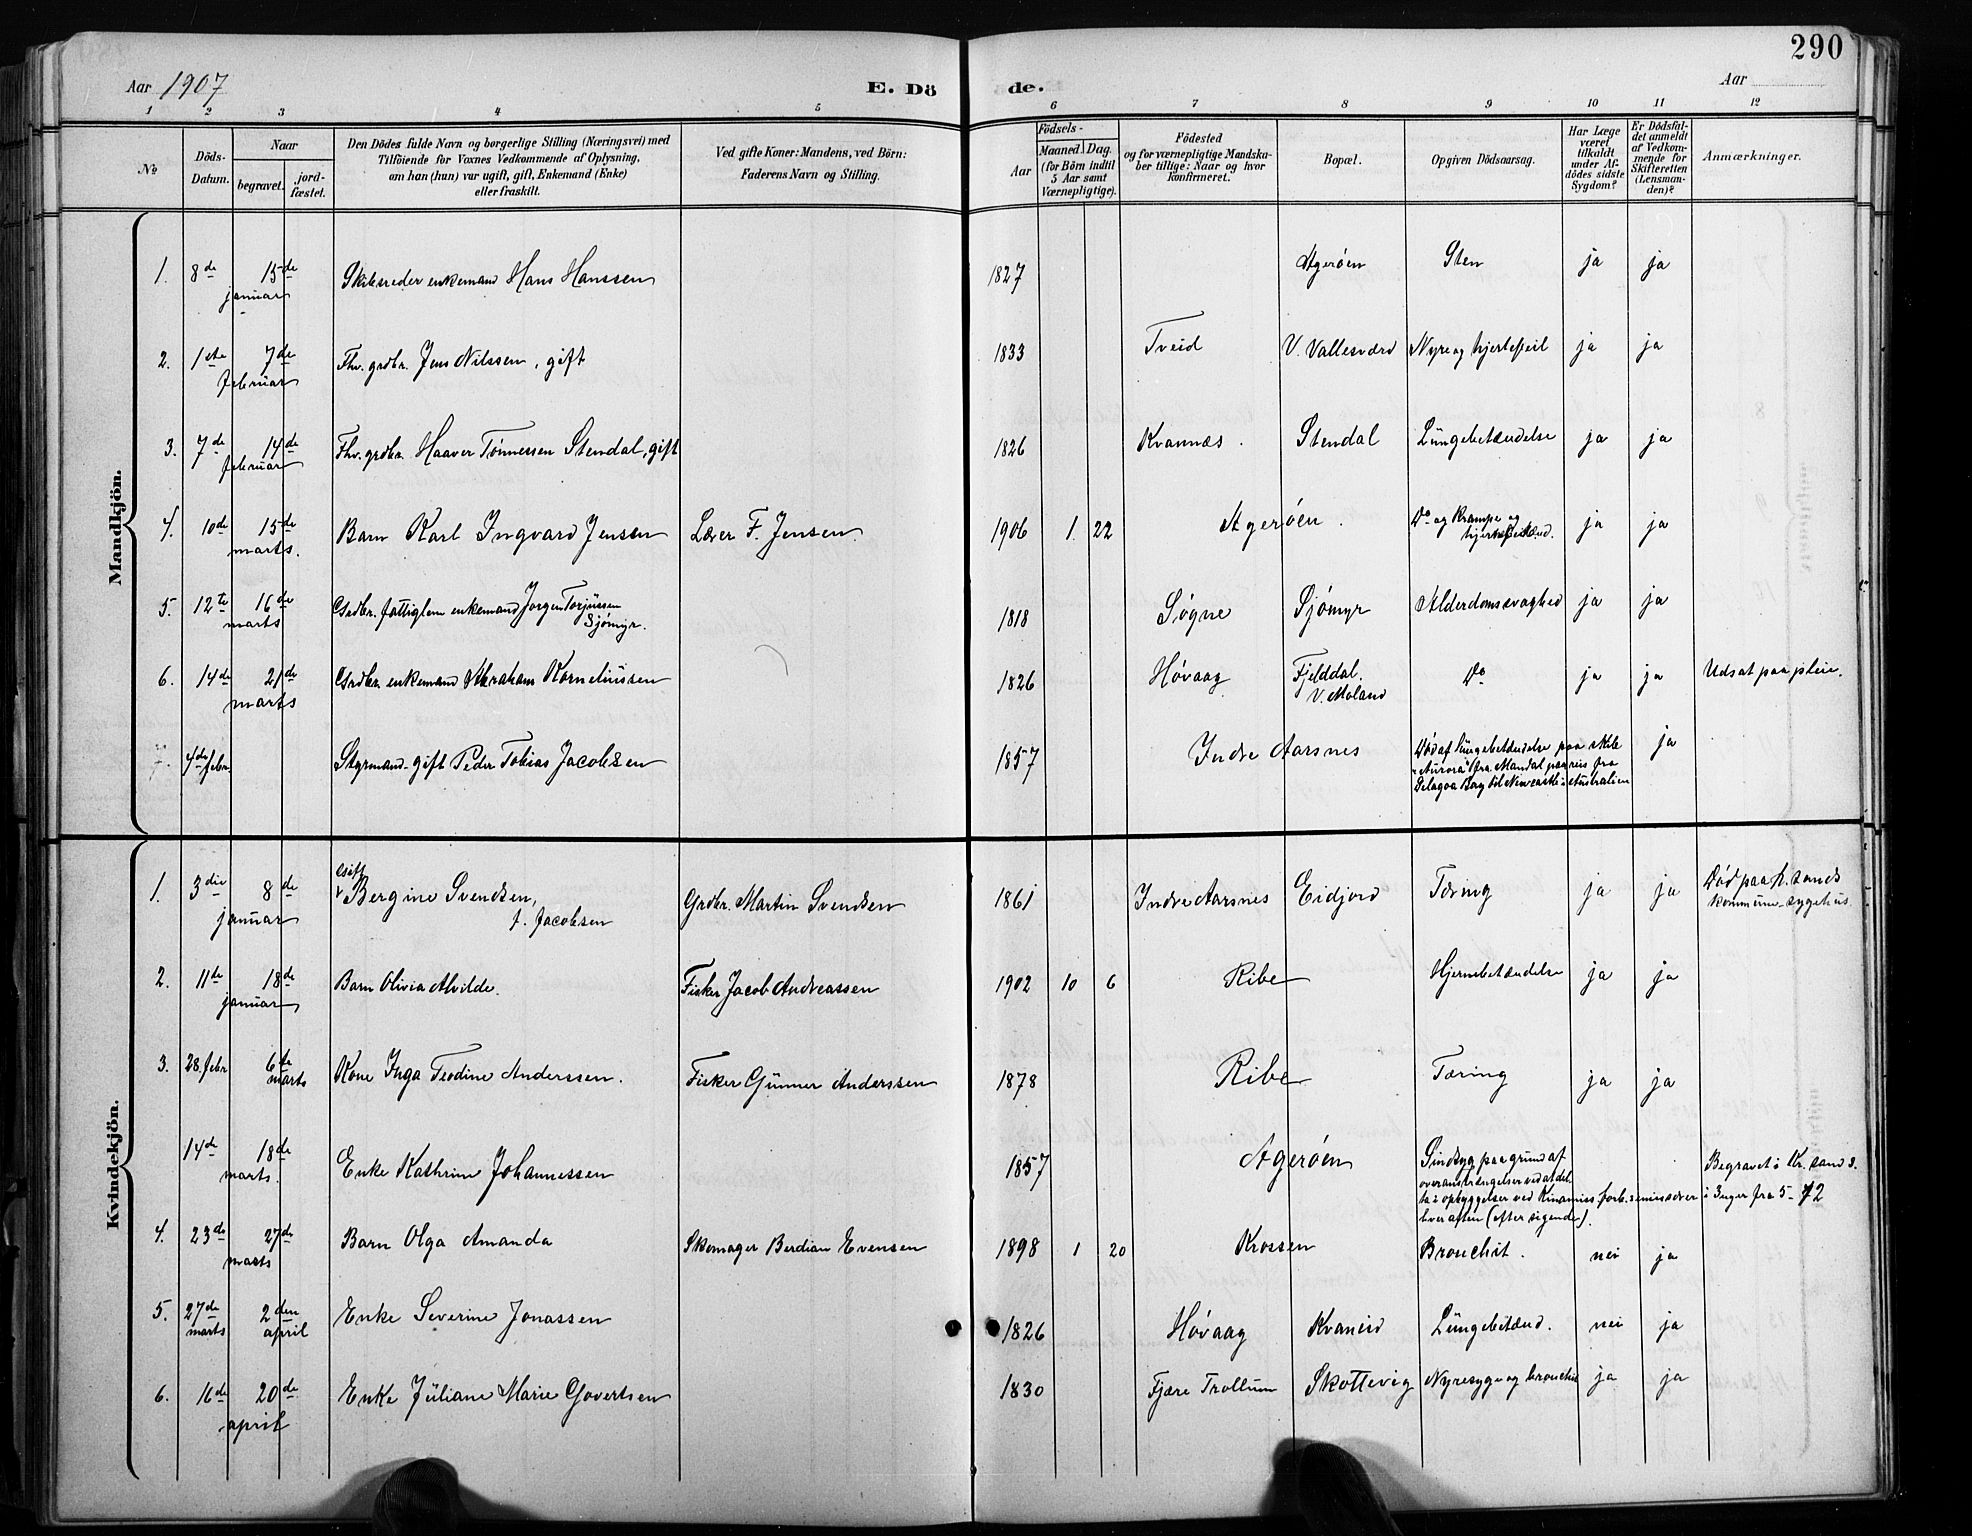 290
Aar 1907 E. Dö de. Aar
1 2 3 4 5 6 7 8 9 10 11 12
№ Döds-Datum. Naar begravet. jord-fæstet. Den Dödes fulde Navn og borgerlige Stilling (Næringsvei) med Tilföiende for Voxnes Vedkommende af Oplysning, om han (hun) var ugift, gift, Enkemand (Enke) eller fraskilt. Ved gifte Koner: Mandens, ved Börn: Faderens Navn og Stilling. Födsels- Aar Maaned Dag. (for Börn indtil 5 Aar samt Værnepligtige). Födested og for værnepligtige Mandskaber tillige: Naar og hvor konfirmeret. Bopæl. Opgiven Dödsaarsag. Har Læge været tilkaldt under Afdödes sidste Sygdom? Er Dödsfaldet anmeldt af Vedkommende for Skifteretten (Lensmanden)? Anmærkninger.
Mandkjön.
1. 8de 15de januar Skibsreder enkemand Hans Hanssen 1827 Agerøen Sten ja ja
2. 1ste 7de februar Fhv. grdbr. Jens Nilssen, gift 1833 Tveid V. Vallesværd Nyre og hjertefeil ja ja
3. 7de 14de februar Fhv. grdbr. Haaver Tønnessen Stendal, gift 1826 Kvannæs. Stendal Lungebetændelse ja ja
4. 10de 15de marts. Barn Karl Ingvard Jensen Lærer F. Jensen. 1906 1. 22 Agerøen. Do og Krampe og ja ja
5. 12te 16de marts Grdbr. fattiglem enkemand Jørgen Torjussen Sjømyr. 1818 Søgne Sjømyr Alderdomssvaghed ja ja
6. 14de 21de marts Grdbr. enkemand Abraham Korneliussen 1826 Høvaag Fjelddal. V. Moland Do ja ja Udsat paa pleie.
7. 4de febr. Styrmand gift Peder Tobias Jacobsen 1857 Indre Aarsnes Død af lungebetændelse paa skib "Aurora" fra Mandal paa reis fra Delagoa Bay til Newcastle i Australien ja
Kvindekjön.
1. 3die 8de januar Gift Bergine Svendsen, f. Jacobsen Grdbr. Martin Svendsen 1861 Indre Aarsnes Eidjord Tæring ja ja Død paa Kr.sands kommune-sygehus.
2. 11de 18de januar Barn Olivia Alvilde. Fisker Jacob Andreassen 1902 10 6 Ribe Hjernebetændelse ja ja
3. 28. febr 6de marts Kone Inga Teodine Anderssen. Fisker Gunner Anderssen 1878 Ribe Tæring ja ja
14de 18de marts. Enke Kathrine Johannessen 1857 Agerøen Sindssyg paa grund af overanstrængelser ved at deltage i opbyggelser ved hver aften (efter sigende). Begravet i Kr.sand s.
4. 23de 27de marts Barn Olga Amanda Skomager Berdian Evensen 1898 1 20 Krossen Bronchit. nei ja
5. 27de marts 2den april Enke Severine Jonassen 1826 Høvaag Kvaneid Lungebetænd. nei ja
6. 16de 20de april Enke Juliane Marie Govertsen 1830 Fjære Trollum Skottevig Nyresyge og bronchit ja ja